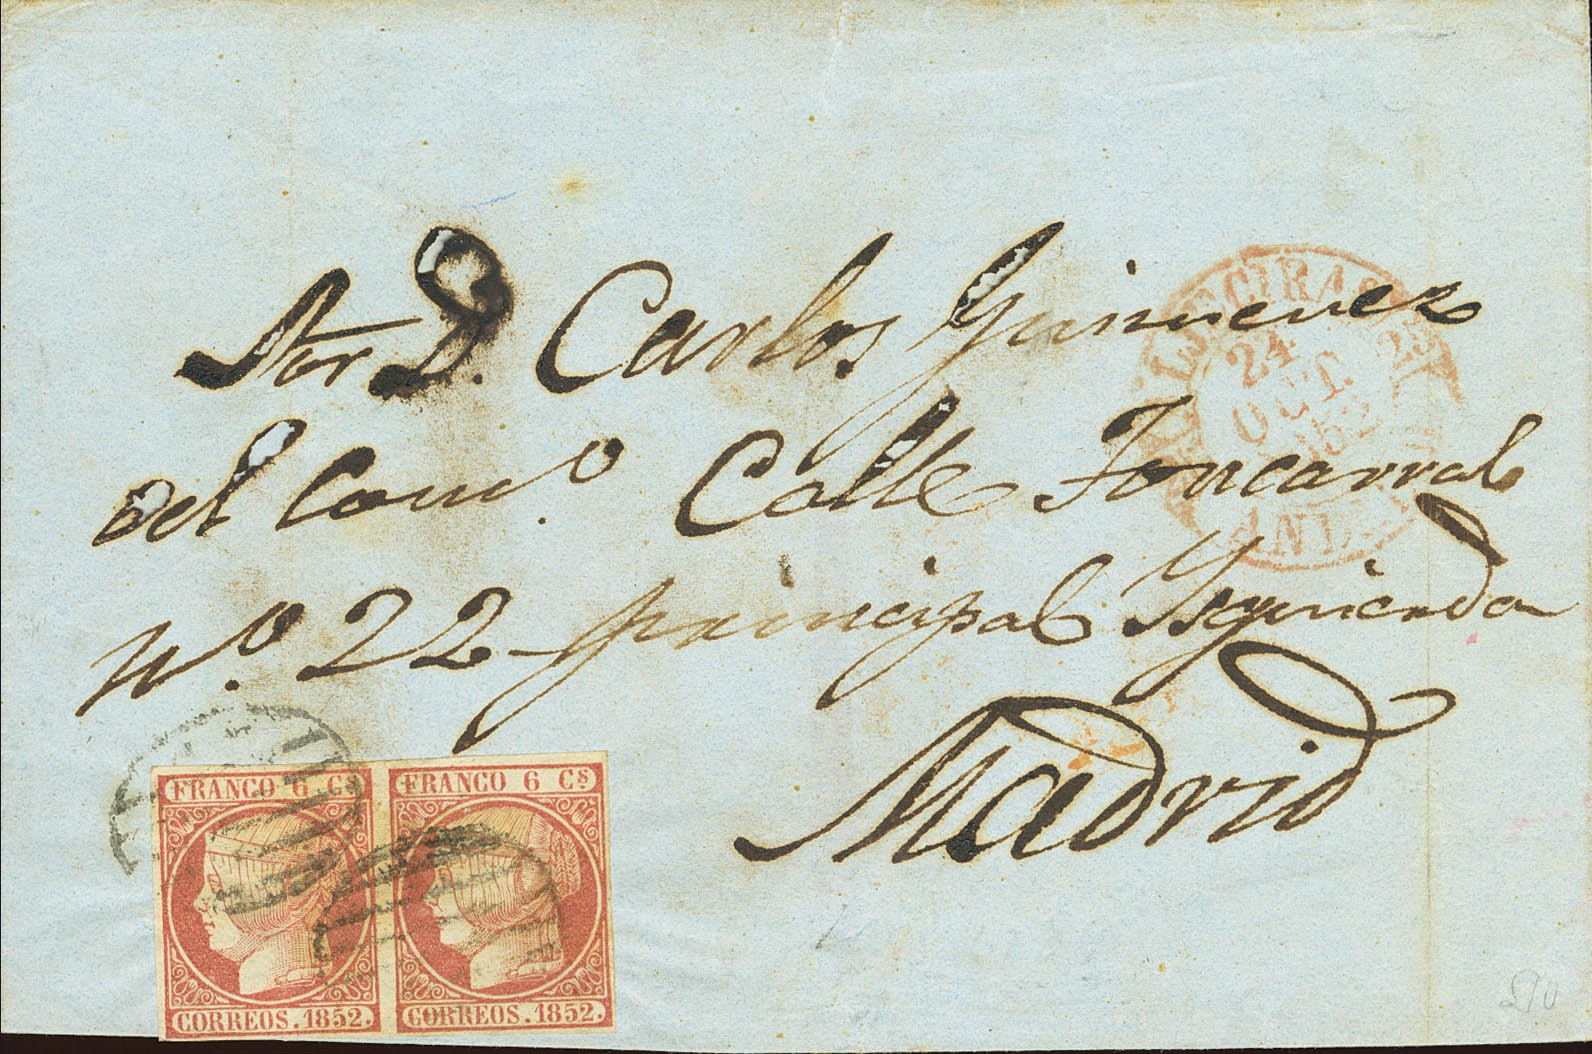 Sor. D. Carlos Gimenez
del Comº. Calle Foncarral
Nº. 22 principal Ysquierda
Madrid
ALGECIRAS
24
OCT.
1852
FRANCO 6 Cs
CORREOS. 1852.
FRANCO 6 Cs
CORREOS. 1852.